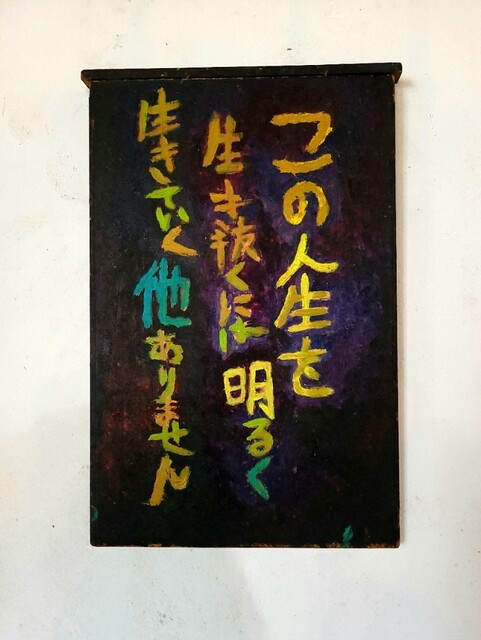 この人生を
生き抜くには明るく
生きていく他ありません